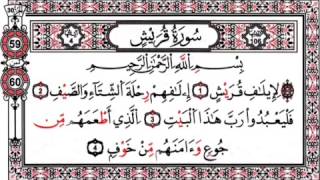 سُورَةُ قُرَيْشٍ
106
4
59
60
بِسْمِ اللَّهِ الرَّحْمَٰنِ الرَّحِيمِ
لِإِيلَٰفِ قُرَيْشٍ 1 إِۦلَٰفِهِمْ رِحْلَةَ الشِّتَآءِ وَالصَّيْفِ 2
فَلْيَعْبُدُوا۟ رَبَّ هَٰذَا الْبَيْتِ 3 الَّذِىٓ أَطْعَمَهُم مِّن
جُوعٍ وَءَامَنَهُم مِّنْ خَوْفٍ 4